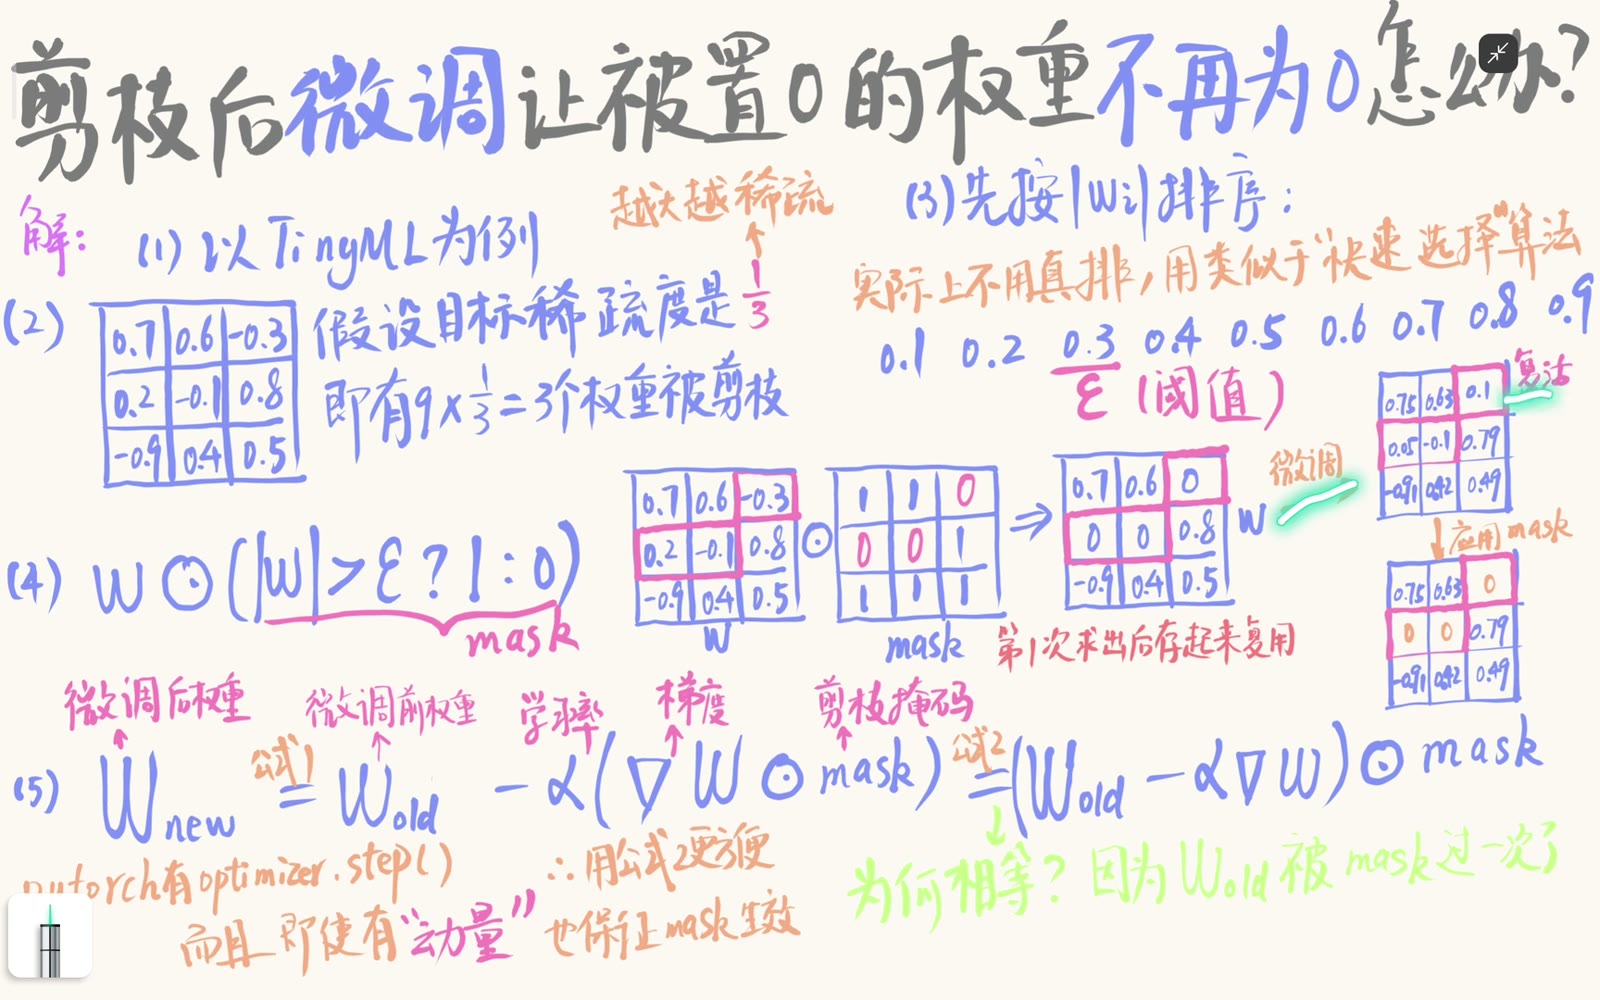 剪枝后微调让被置0的权重不再为0怎么办?
解:
(1) 以TinyML为例
越大越稀疏
(2)
0.7 0.6 -0.3
0.2 -0.1 0.8
-0.9 0.4 0.5
假设目标稀疏度是1/3
即有9×1/3=3个权重被剪枝
(3)先按|Wi|排序:
实际上不用真排,用类似于"快速选择"算法
0.1 0.2 0.3 0.4 0.5 0.6 0.7 0.8 0.9
ε (阈值)
(4) W⊙(|W|>ε?1:0)
mask
0.7 0.6 -0.3
0.2 -0.1 0.8
-0.9 0.4 0.5
W
⊙
1 1 0
0 0 1
1 1 1
mask
⇒
0.7 0.6 0
0 0 0.8
-0.9 0.4 0.5
W
第1次求出后存起来复用
微调
0.75 0.63 0.1
0.05 -0.1 0.79
-0.91 0.42 0.49
复活
↓应用mask
0.75 0.63 0
0 0 0.79
-0.91 0.42 0.49
微调后权重 微调前权重 学习率 梯度 剪枝掩码
公式1 公式2
(5) Wnew = Wold - α(∇W⊙mask) = (Wold - α∇W)⊙mask
pytorch有optimizer.step()
∴用公式2更方便
而且即使有"动量"也保证mask生效
为何相等? 因为Wold被mask过一次了